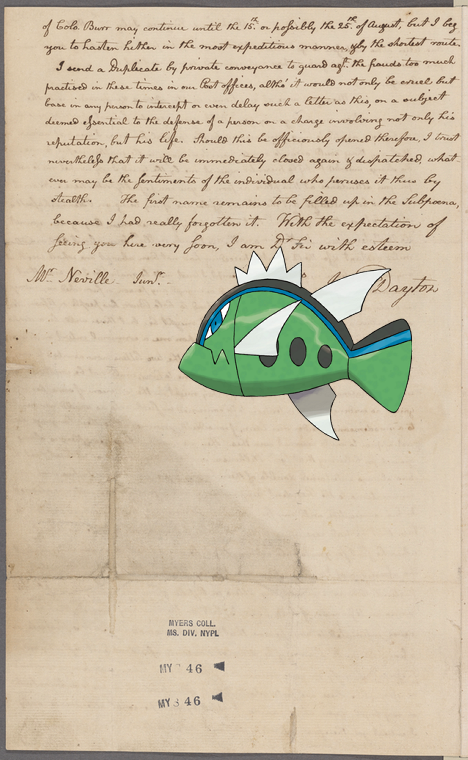 of Colo. Burr may continue until the 15th. or possibly the 25th. of August, but I beg
you to hasten hether in the most expeditious manner, & by the shortest route.
I send a Duplicate by private conveyance to guard agt. the frauds too much
practised in these times in our Post offices, altho' it would not only be cruel but
base in any person to intercept or even delay such a letter as this, on a subject
deemed essential to the defense of a person on a charge involving not only his
reputation, but his life. Should this be officiously opened therefore, I trust
nevertheless that it will be immediately closed again & despatched, what
ever may be the sentiments of the individual who peruses it thus by
stealth. The first name remains to be filled up in the Subpoena,
because I had really forgotten it. With the expectation of
seeing you here very soon, I am Dr. Sir with esteem
Mr. Neville Junr.
Dayton
MYERS COLL.
MS. DIV. NYPL
MY 46
MY 46